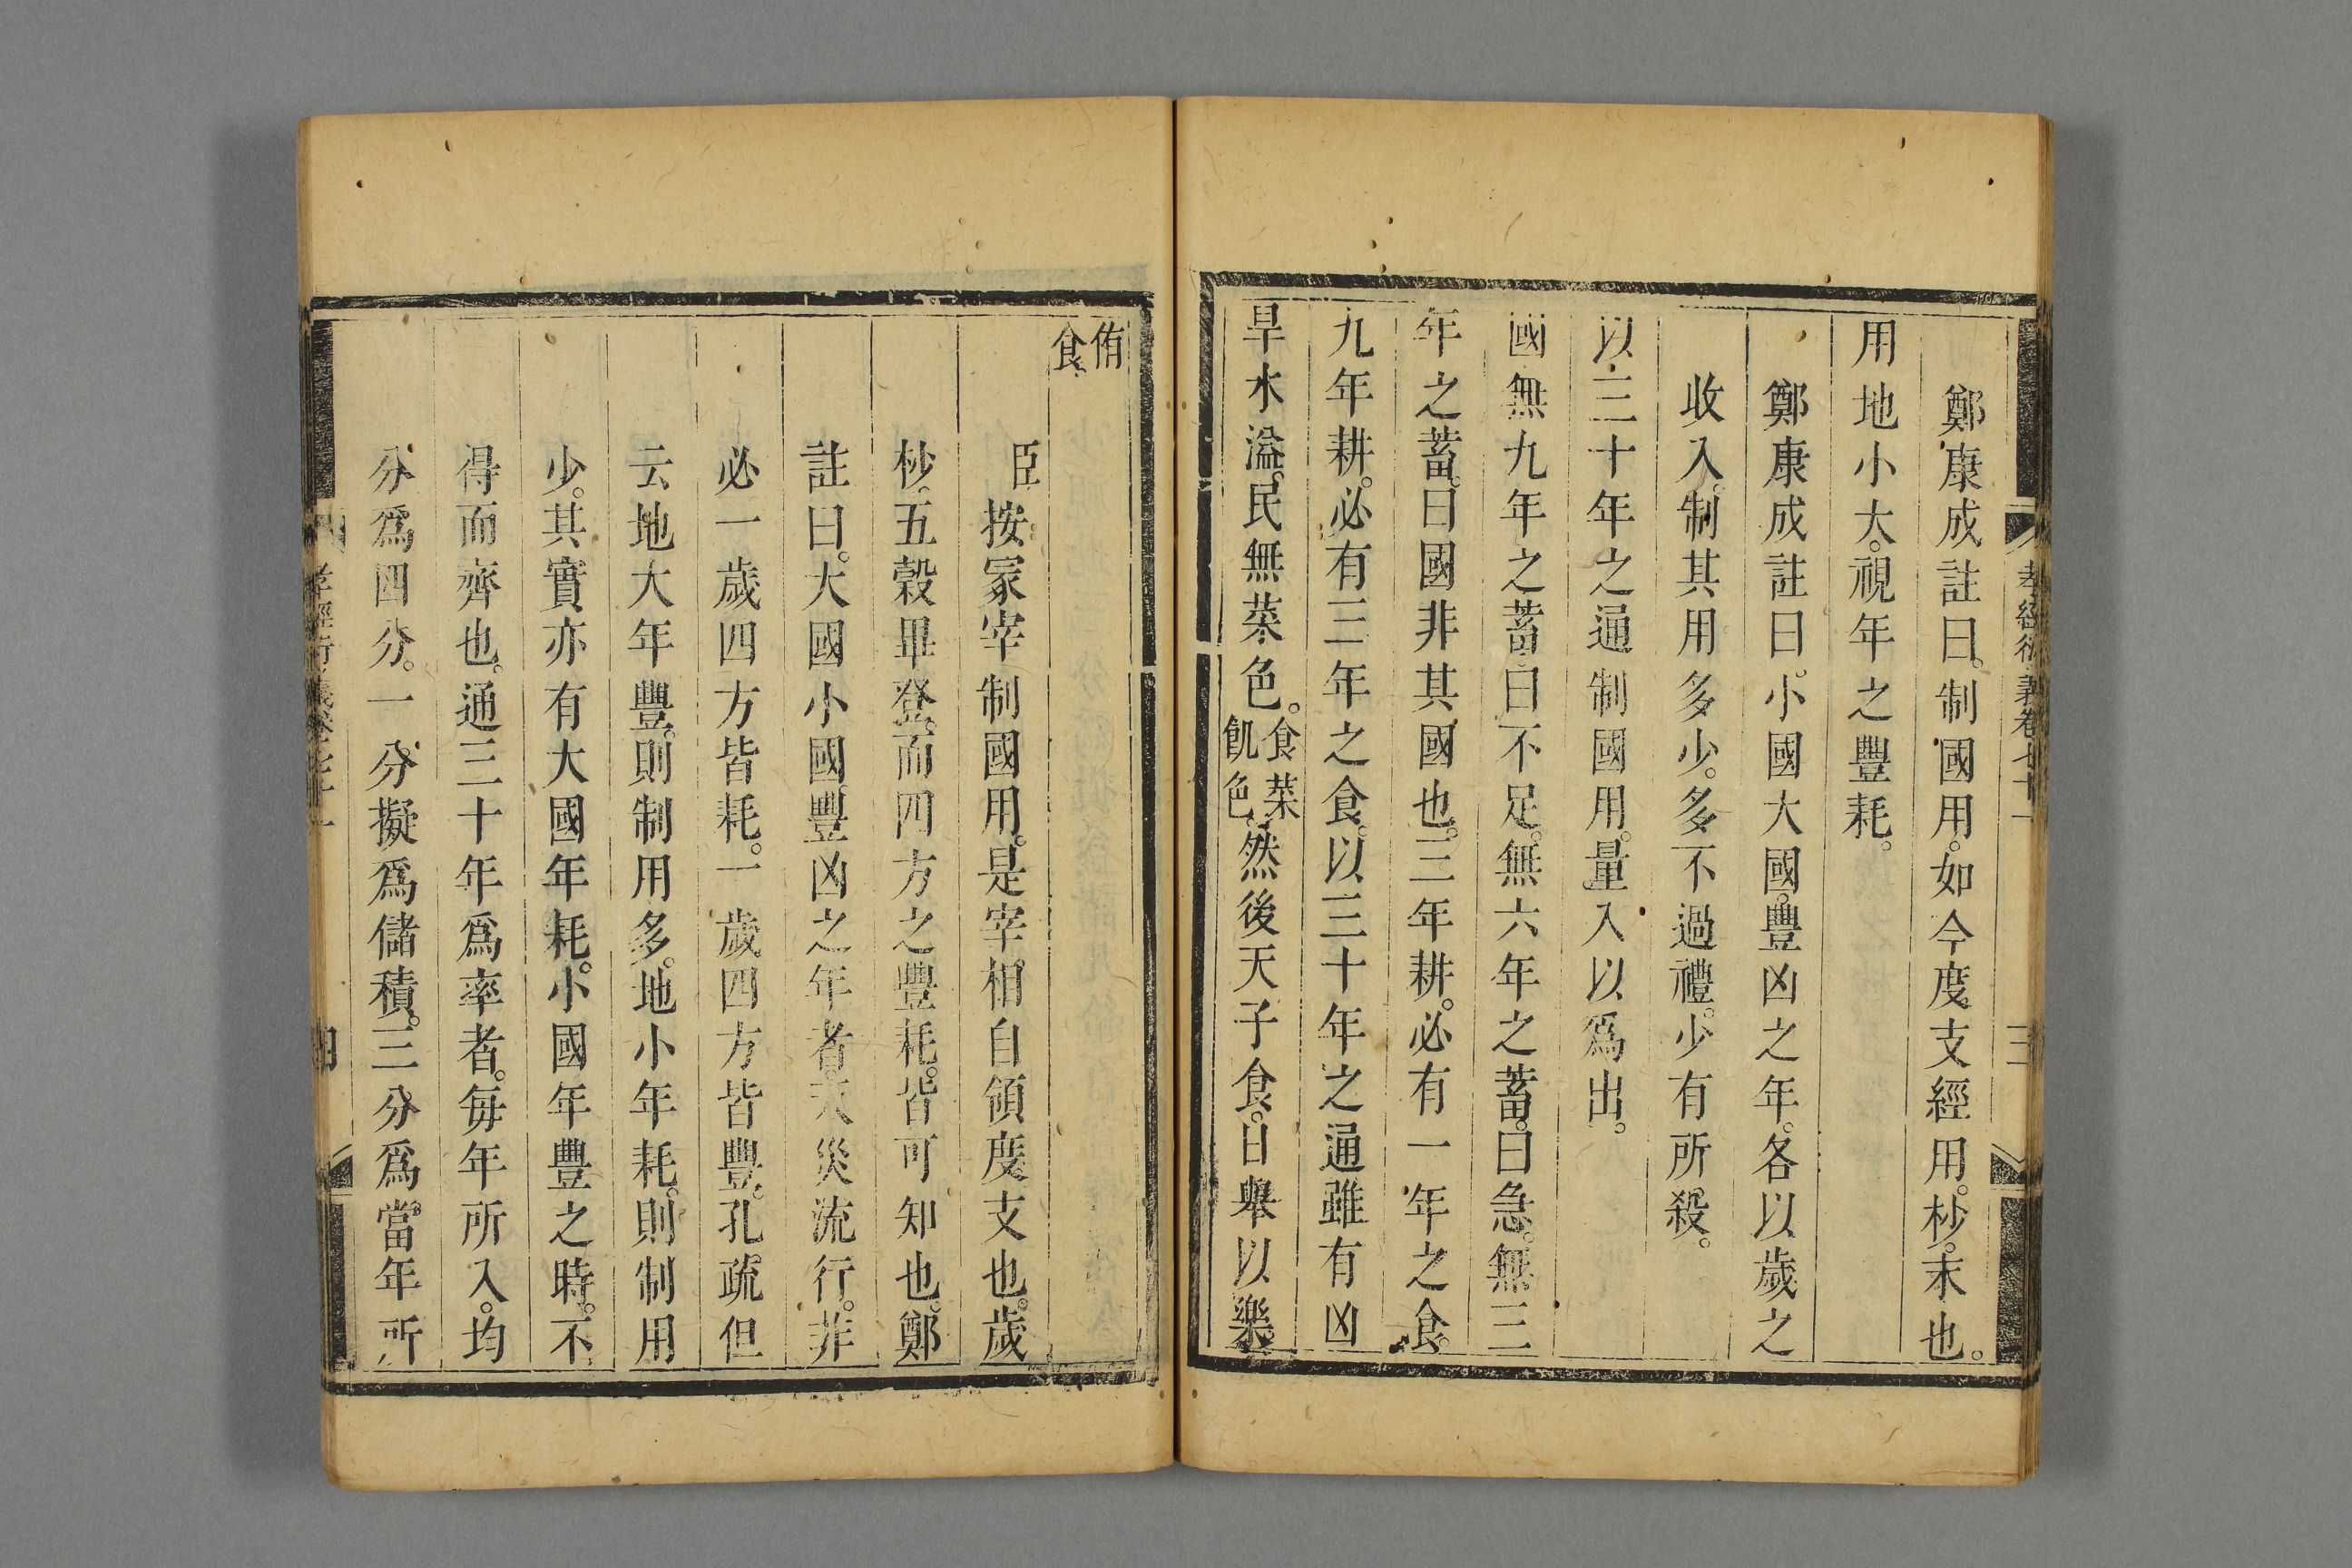 孝經衍義卷七十一
三
鄭康成註曰。制國用。如今度支經用。杪。末也。
用地小大。視年之豐耗。
鄭康成註曰。小國大國。豐凶之年。各以歲之
收入。制其用多少。多不過禮。少有所殺。
以三十年之通制國用。量入以爲出。
國無九年之蓄。曰不足。無六年之蓄。曰急。無三
年之蓄。曰國非其國也。三年耕。必有一年之食。
九年耕。必有三年之食。以三十年之通。雖有凶
旱水溢。民無菜色。食菜飢色。然後天子食。日舉以樂。
侑食
臣按冢宰制國用。是宰相自領度支也。歲
杪。五穀畢登。而四方之豐耗。皆可知也。鄭
註曰。大國小國。豐凶之年者。天災流行。非
必一歲四方皆耗。一歲四方皆豐。孔疏但
云地大年豐。則制用多。地小年耗。則制用
少。其實亦有大國年耗。小國年豐之時。不
得而齊也。通三十年爲率者。每年所入。均
分爲四分。一分擬爲儲積。三分爲當年所
孝經衍義卷七十一
四